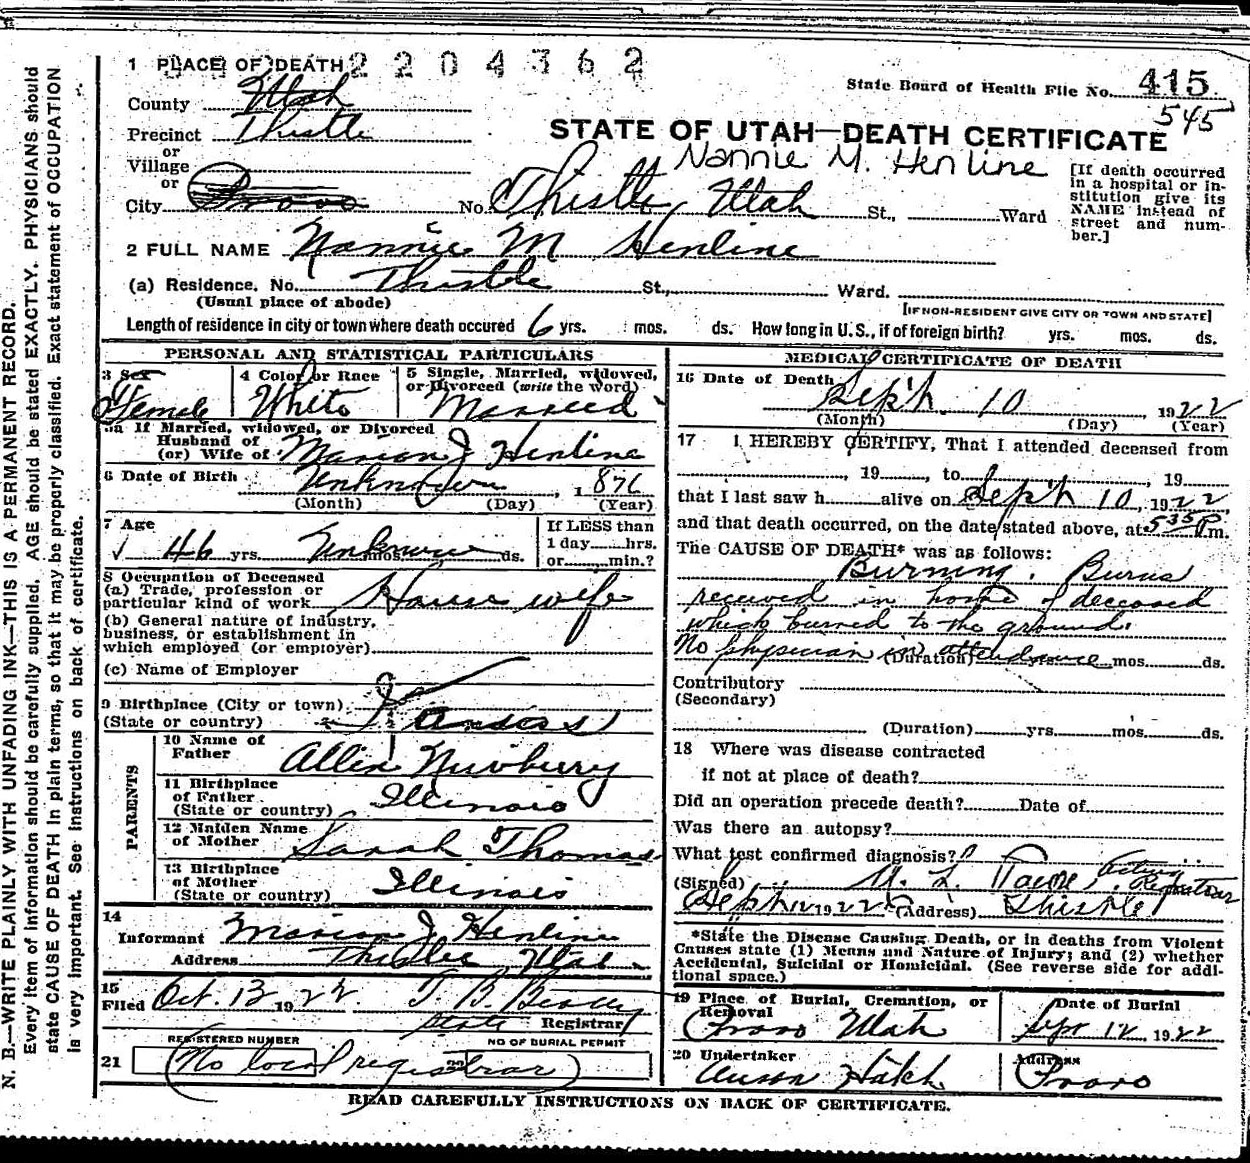 1 PLACE OF DEATH 2204362
State Board of Health File No. 415
545
County Utah
Precinct Thistle
or
Village
or
City Provo No. Thistle, Utah St., Ward
STATE OF UTAH—DEATH CERTIFICATE
Nannie M. Henline
[If death occurred
in a hospital or in-
stitution give its
NAME instead of
street and num-
ber.]
2 FULL NAME Nannie M Henline
(a) Residence. No. Thistle St., Ward.
(Usual place of abode)
[IF NON-RESIDENT GIVE CITY OR TOWN AND STATE]
Length of residence in city or town where death occured 6 yrs. mos. ds. How long in U.S., if of foreign birth? yrs. mos. ds.
PERSONAL AND STATISTICAL PARTICULARS
3 Sex
Female
4 Color or Race
White
5 Single, Married, widowed,
or Divorced (write the word)
Married
5a If Married, widowed, or Divorced
Husband of
(or) Wife of Marion J Henline
6 Date of Birth Unknown, 1876
(Month) (Day) (Year)
7 Age
46 yrs. Unknown mos. ds.
If LESS than
1 day hrs.
or min.?
8 Occupation of Deceased
(a) Trade, profession or
particular kind of work House wife
(b) General nature of Industry,
business, or establishment in
which employed (or employer)
(c) Name of Employer
9 Birthplace (City or town)
(State or country) Kansas
PARENTS
10 Name of
Father Allin Newburry
11 Birthplace
of Father
(State or country) Illinois
12 Maiden Name
of Mother Sarah Thomas
13 Birthplace
of Mother
(State or country) Illinois
14
Informant Marion J. Henline
Address Thistle Utah
15
Filed Oct. 13 1922.
State Registrar
REGISTERED NUMBER NO OF BURIAL PERMIT
21 (No local registrar) 22
MEDICAL CERTIFICATE OF DEATH
16 Date of Death Sep'h 10, 1922
(Month) (Day) (Year)
17 I HEREBY CERTIFY, That I attended deceased from
, 19 , to , 19
that I last saw h alive on Sep'h 10, 1922
and that death occurred, on the date stated above, at 5 35 P m.
The CAUSE OF DEATH* was as follows:
Burning. Burns
received in home of deceased
which burned to the ground.
No physician in attendance
(Duration) mos. ds.
Contributory
(Secondary)
(Duration) yrs. mos. ds.
18 Where was disease contracted
if not at place of death?
Did an operation precede death? Date of
Was there an autopsy?
What test confirmed diagnosis?
(Signed) Acting Registrar
Sept 12 1922 (Address) Thistle
*State the Disease Causing Death, or in deaths from Violent
Causes state (1) Menns und Nature of Injury; and (2) whether
Accidental, Suicidal or Homicidal. (See reverse side for addi-
tional space.)
19 Place of Burial, Cremation, or
Removal
Provo Utah
Date of Burial
Sept 12 1922
20 Undertaker
Hatch
Address
Provo
READ CAREFULLY INSTRUCTIONS ON BACK OF CERTIFICATE.
N. B.—WRITE PLAINLY WITH UNFADING INK—THIS IS A PERMANENT RECORD.
Every item of information should be carefully supplied. AGE should be stated EXACTLY. PHYSICIANS should
state CAUSE OF DEATH in plain terms, so that it may be properly classified. Exact statement of OCCUPATION
is very important. See instructions on back of certificate.